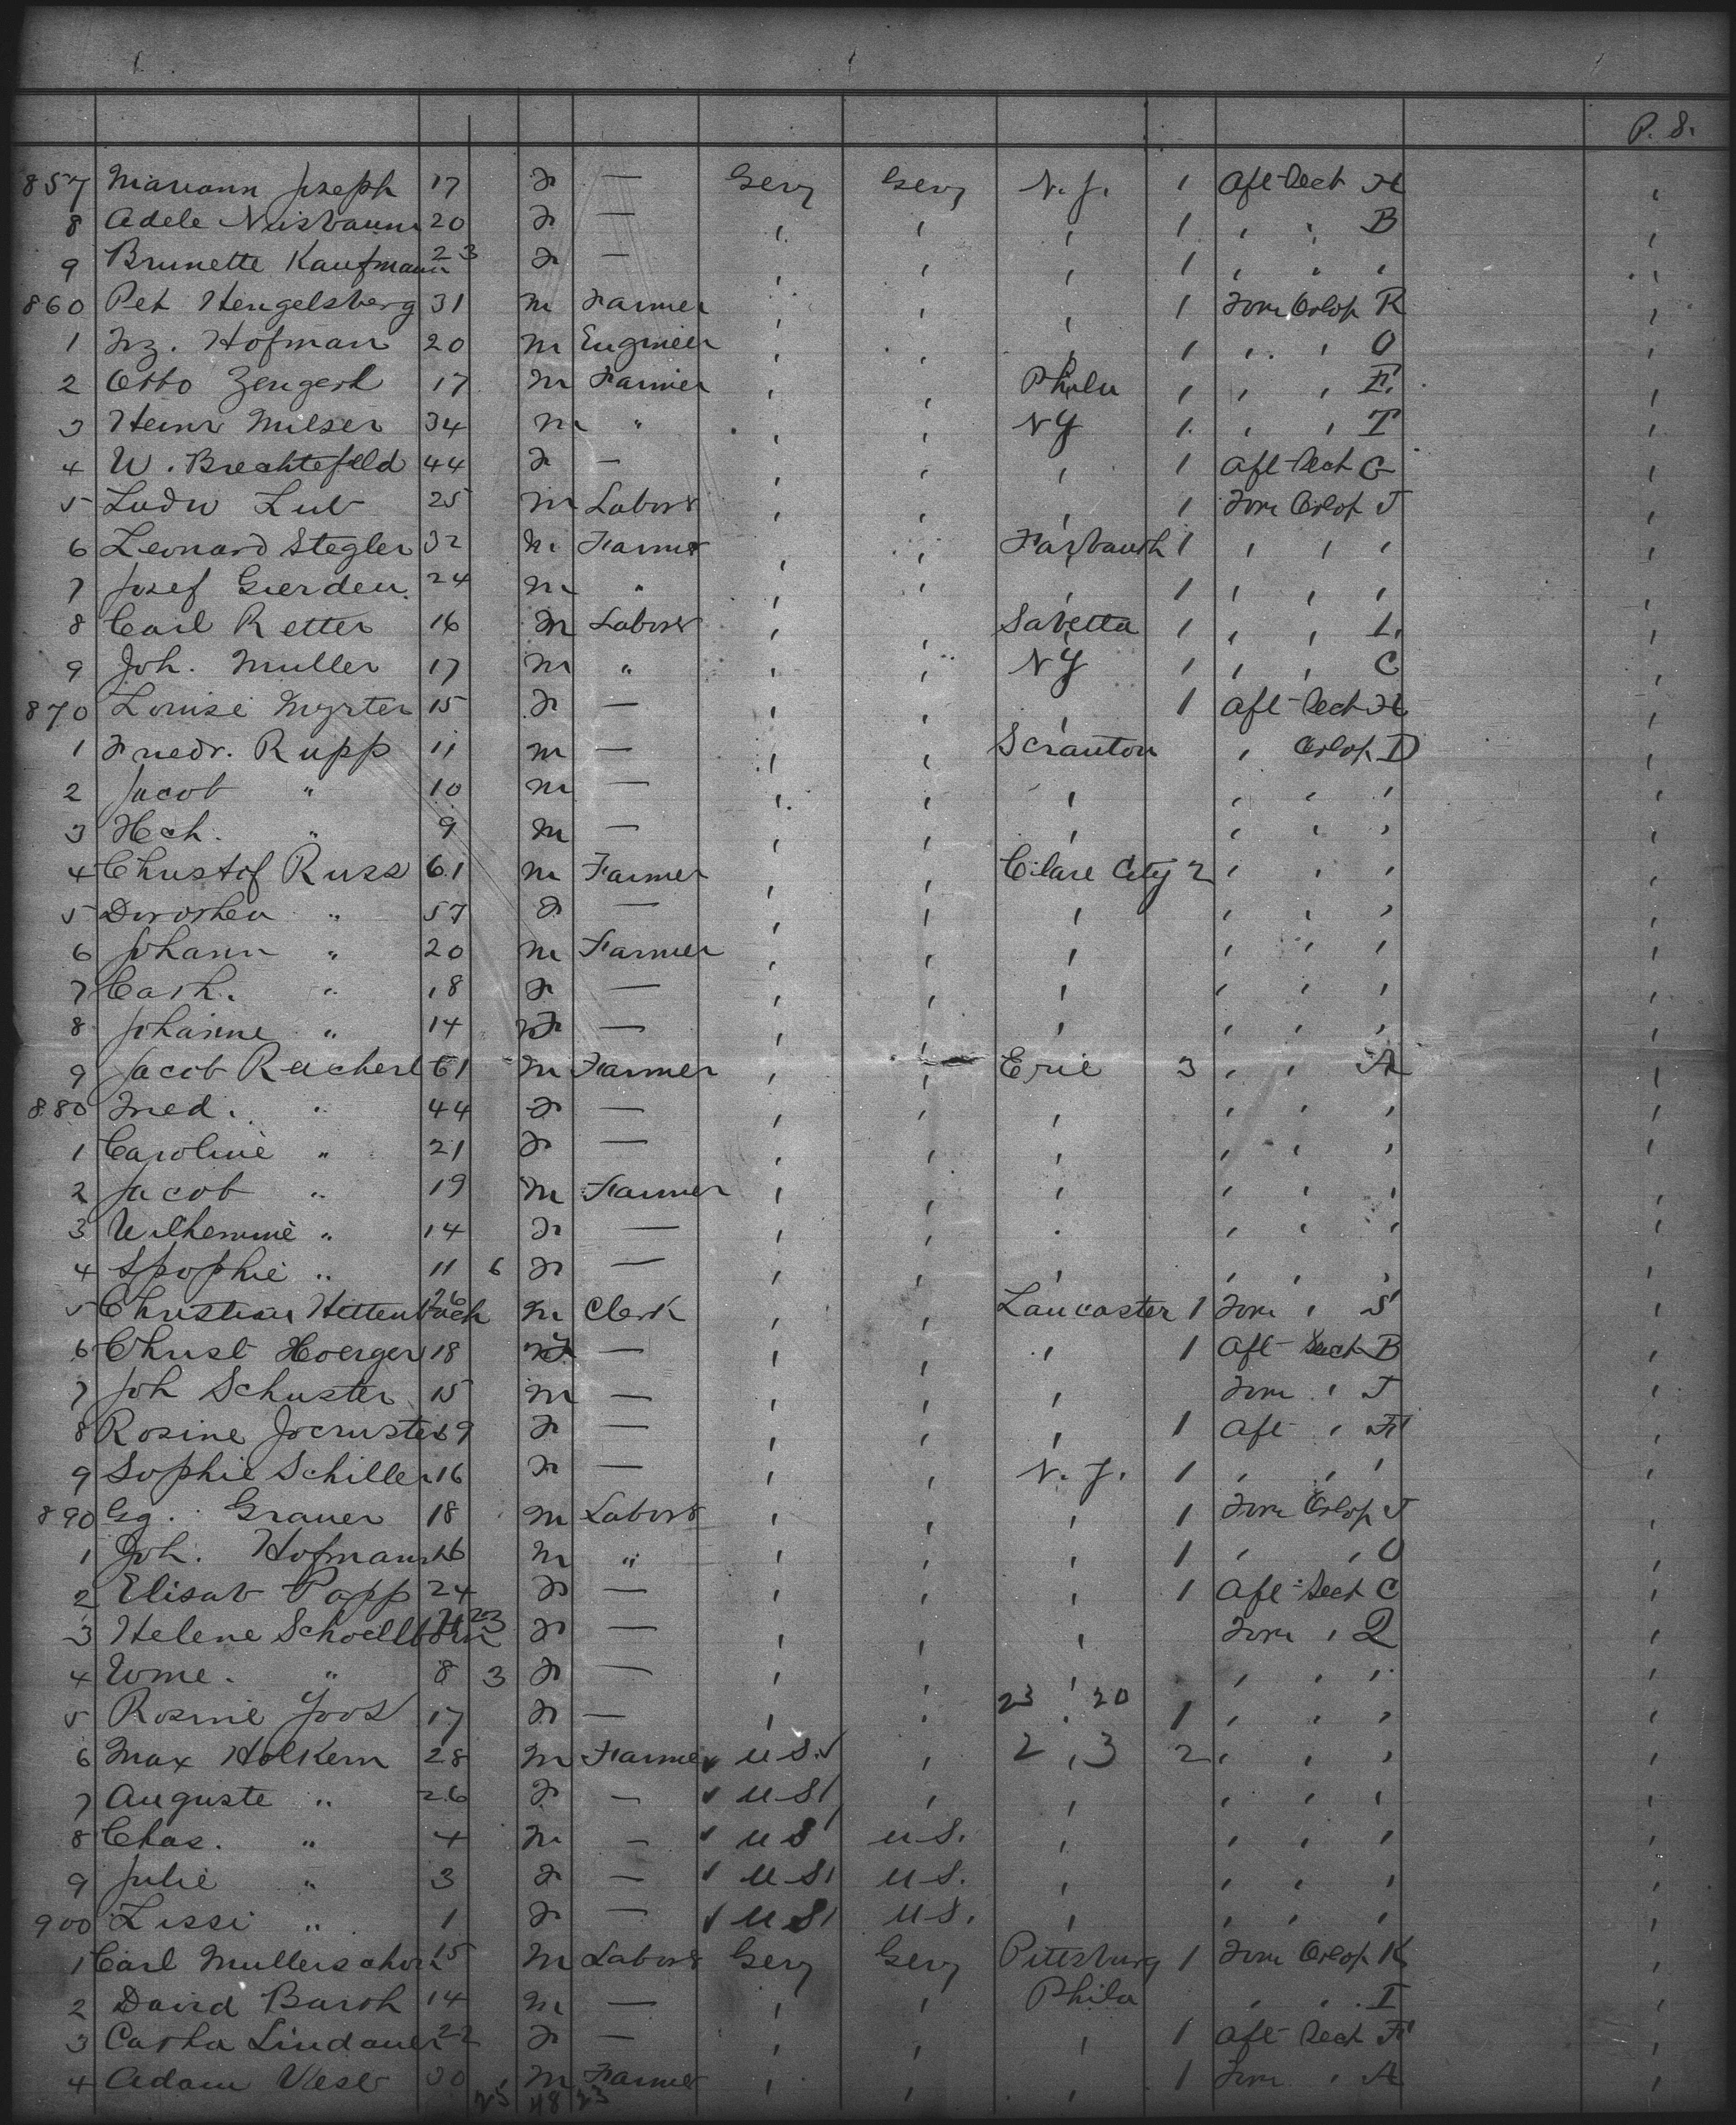 P. S.
857 Mariann Joseph 17 F — Gery Gery N. J. 1 Aft Deck H ,
8 Adele Nusbaum 20 F — , , , 1 , , B ,
9 Brunette Kaufmann 23 F — , , , 1 , , , ,
860 Pet Hengelsberg 31 M Farmer , , , 1 Forw Orlop R ,
1 Frz. Hofman 20 M Engineer , , , 1 , , O ,
2 Otto Zengerl 17 M Farmer , , Phila 1 , , E ,
3 Heinr Milser 34 M " , , NY 1 , , T ,
4 W. Brechtefeld 44 F — , , , 1 Aft Deck G ,
5 Ludw Lub 25 M Labors , , , 1 Forw Orlop J ,
6 Leonard Stegler 32 M Farmer , , 1 , , , ,
7 Josef Gierden 24 M " , , , 1 , , , ,
8 Carl Retter 16 M Labors , , Savetta 1 , , L ,
9 Joh. Muller 17 M " , , NY 1 , , C ,
870 Louise Myrter 15 F — , , , 1 Aft Deck H ,
1 Friedr. Rupp 11 M — , , Scranton , Orlop D ,
2 Jacob " 10 M — , , , , , , ,
3 Hch. " 9 M — , , , , , , ,
4 Christof Russ 61 M Farmer , , Clare City 2 , , , ,
5 Dorothea " 57 F — , , , , , , ,
6 Johann " 20 M Farmer , , , , , , ,
7 Cath. " 18 F — , , , , , , ,
8 Johanne " 14 F — , , , , , , ,
9 Jacob Reicherl 61 M Farmer , , Erie 3 , , A ,
880 Fried. " 44 F — , , , , , , ,
1 Caroline " 21 F — , , , , , , ,
2 Jacob " 19 M Farmer , , , , , , ,
3 Wilhemine " 14 F — , , , , , , ,
4 Spophie " 11 6 F — , , , , , , ,
5 Christian Hettenbach 26 M Clerk , , Lancaster 1 Forw , S ,
6 Christ Hoerger 18 F — , , , 1 Aft Deck B ,
7 Joh Schuster 15 M — , , , Forw , J ,
8 Rosine 19 F — , , , 1 Aft , F ,
9 Sophie Schiller 16 F — , , N. J. 1 , , , ,
890 Gg. Grauer 18 M Labors , , , 1 Forw Orlop J ,
1 Joh. Hofmann 16 M " , , , 1 , , O ,
2 Elisab Popp 24 F — , , , 1 Aft Deck C ,
3 Helene Schoellborn 23 F — , , , Forw , Q ,
4 Wme. " 8 3 F — , , , , , , ,
5 Rosine Joos 17 F — , , 23 , 20 1 , , , ,
6 Max Holkern 28 M Farmer ✓ U S. , 2 , 3 2 , , , ,
7 Auguste " 26 F — ✓ U S , , , , , ,
8 Chas. " 4 M — ✓ U S U S. , , , , ,
9 Julie " 3 F — ✓ U S U S. , , , , ,
900 Lissi " 1 F — ✓ U S U S. , , , , ,
1 Carl Mullerschon 15 M Labors Gery Gery Pittsburg 1 Forw Orlop K ,
2 David Barth 14 M — , , Phila , , I ,
3 Catha Lindauer 22 F — , , , 1 Aft Deck F ,
4 Adam 30 M Farmer , , , 1 Forw , A ,
25 48 23